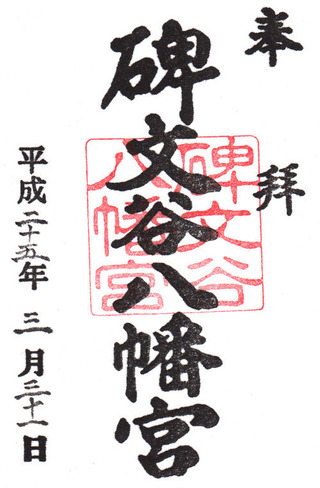 奉拝
碑文谷八幡宮
碑文谷
八幡宮
平成二十五年三月三十一日